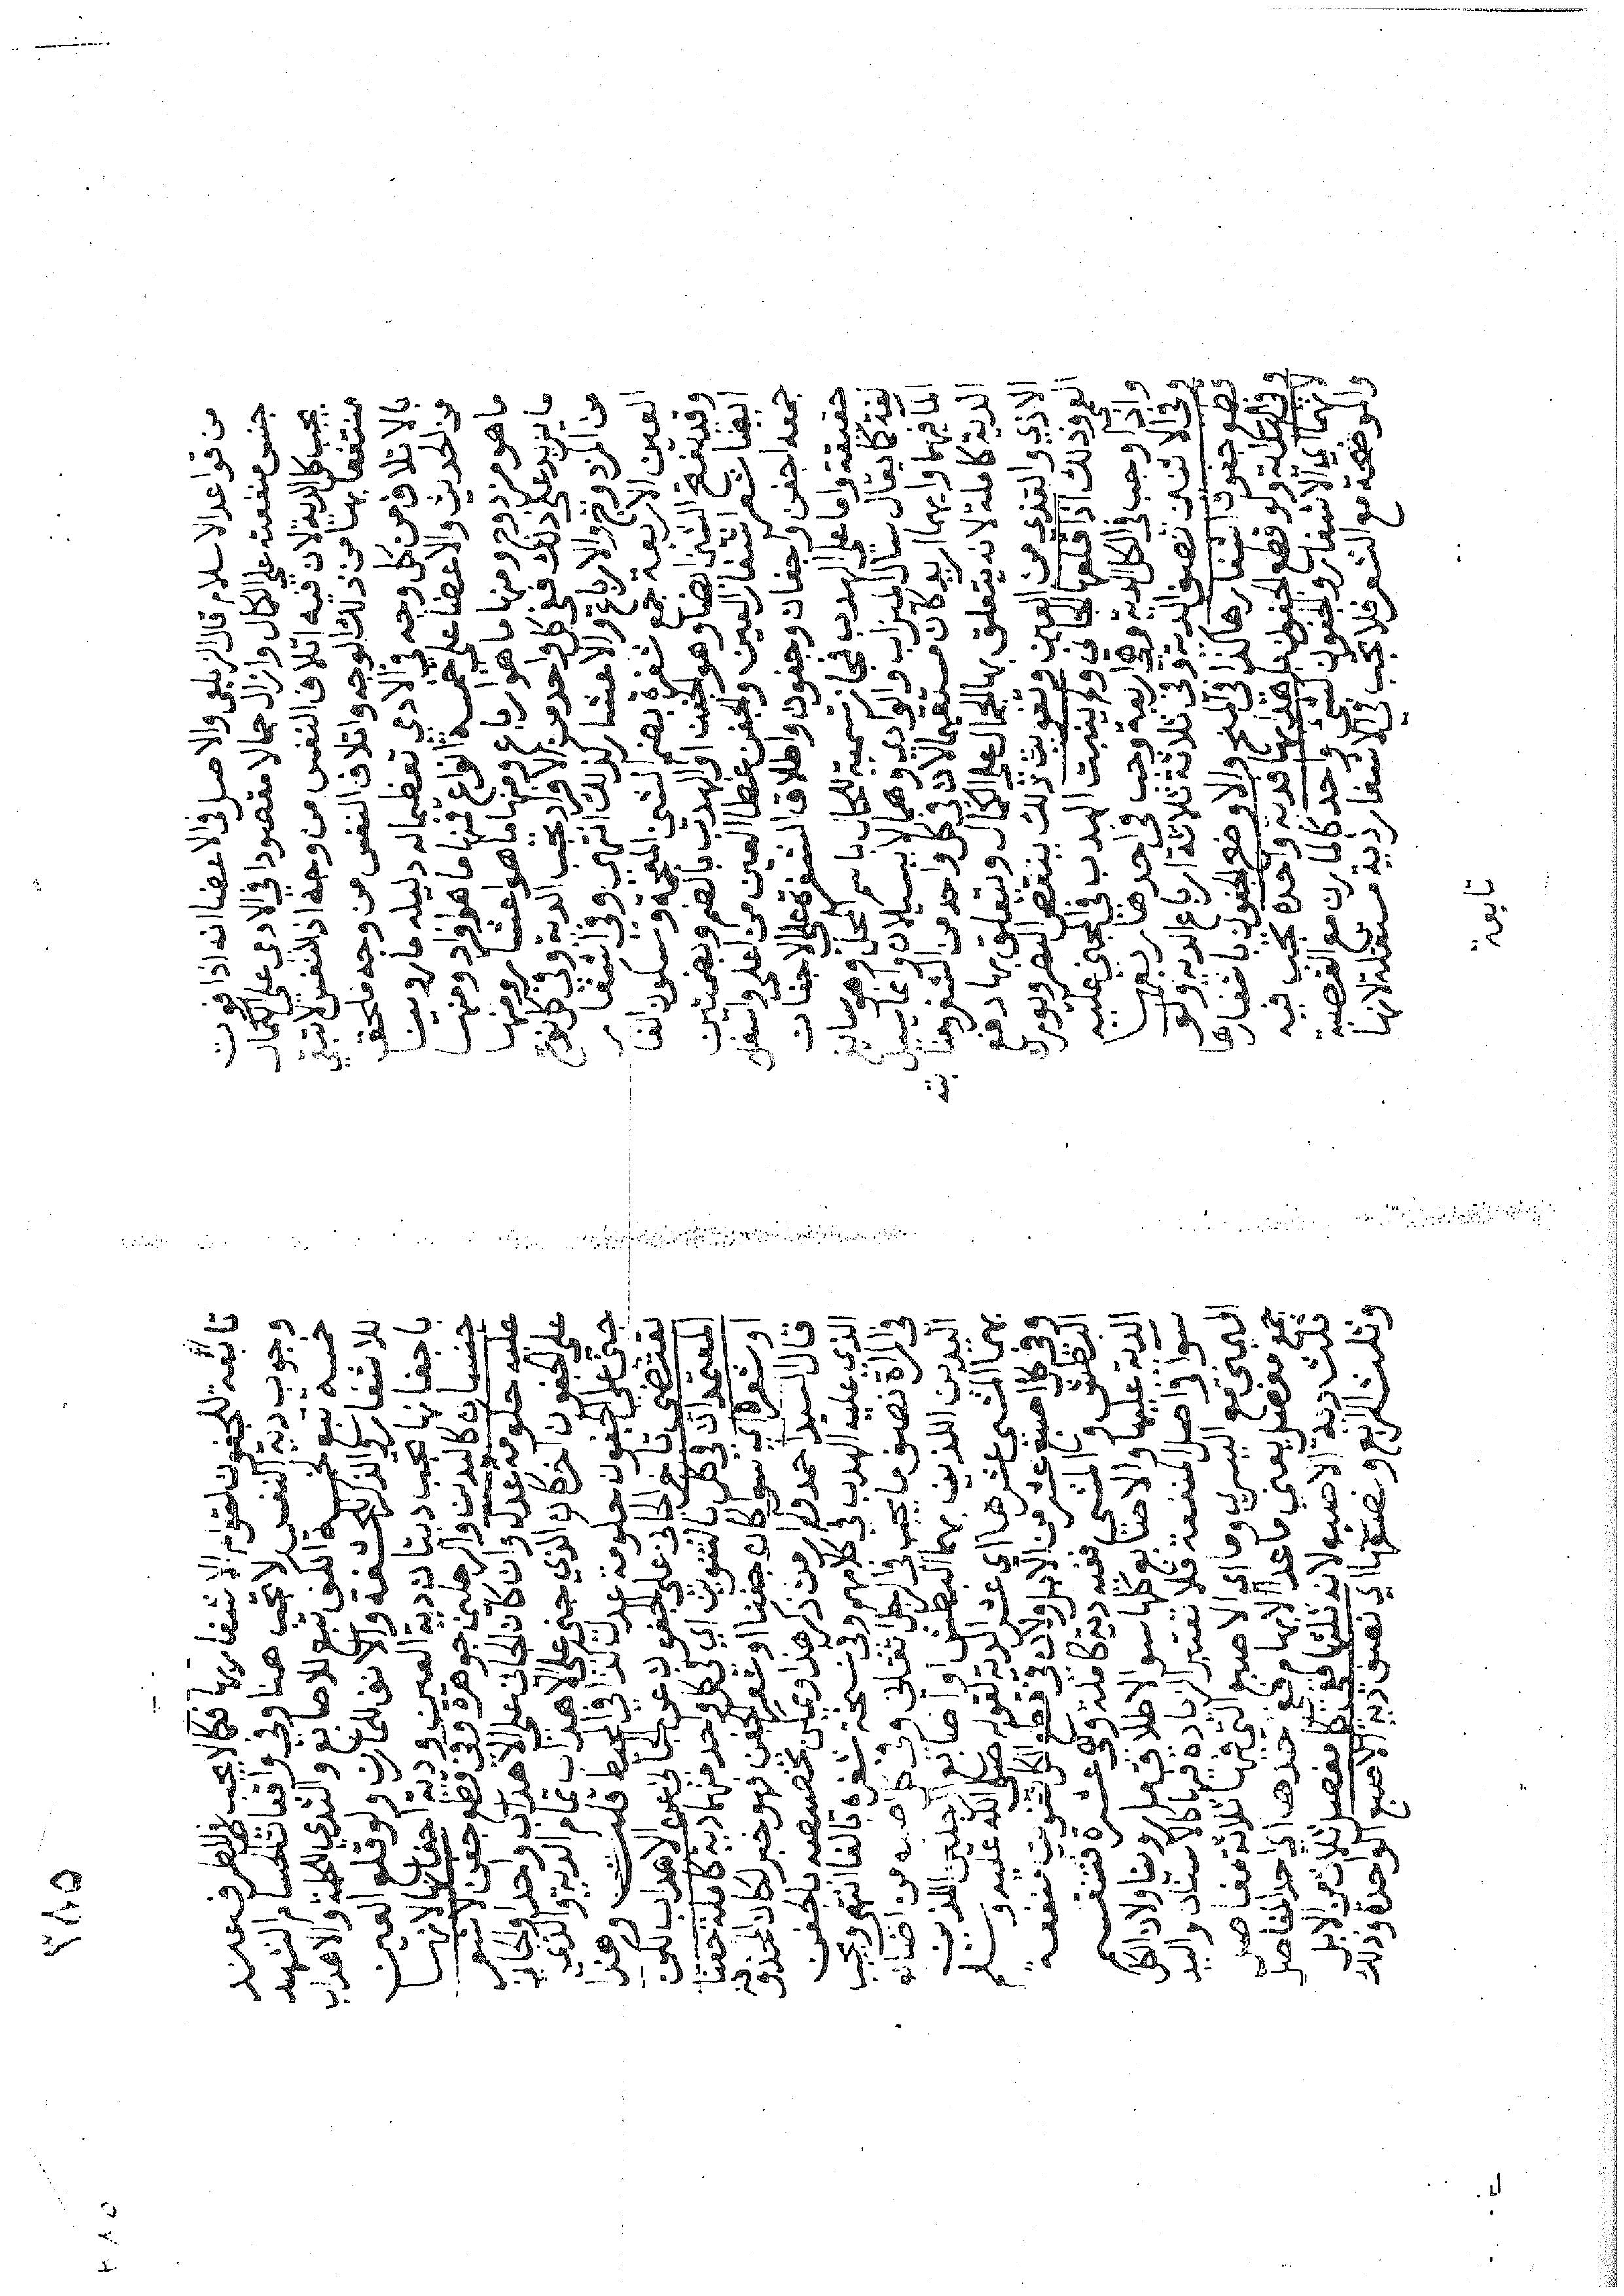 من قواعد الاسلام قال الزيلعي والاصل في الاعضا انه اذا فوت
جنس منفعته على الكمال وازال جمالا مقصودا في الادمي على الكمال
يجب كل الدية لان فيه اتلاف النفس من وجه اذ النفس لا تبقى
منتفعا بها من ذلك الوجه واتلاف النفس من وجه ملحق
بالاتلاف من كل وجه في الادمي تعظيما له دليله ما روينا
من الحديث والاعضا على خمسة انواع فمنها ما هو افراد ومنها
ما هو مزدوج ومنها ما هو ارباع ومنها ما هو اعشار ومنها
ما يزيد على ذلك ففي كل واحد من الافراد تجب الدية وفي كل نوع
من المزدوج والارباع والاعشار كذلك انتهى وفي اشفار
العين الاربعة جمع شفرة بضم الشين المعجمة وسكون الفا
وقد يفتح الشين ايضا وهو الجفن او الهدب بالضم وبضمتين
ايضا شعر اشفار العين والجفن غطا العين من اعلى واسفل
جمعه اجفن واجفان وجفون واطلاق الشفرة على الاجفان
حقيقة واما على الهدب فمجاز تسمية للحال باسم المحل وهو سايغ
لغة كما يقال سال الميزاب والوادي وهما لا يسيلان وانما يسيل
الما فيهما وايهما اريد كان مستقيما لان في كل واحد من الشفر ومنابته
الدية كاملة لانه يتعلق بها الجمال على الكمال ويتعلق بها دفع
الاذي والقذي من العين وتفويت ذلك ينقص البصر ويورث
العمى وذلك اذا قلعها الجاني ولم ينبت الهدب في المجني عليه
واذا وجب في الكل الدية وهي اربعة وجب في احدها ربعها
وفي الاثنين نصف الدية وفي ثلاثة ثلاثة ارباع الدية ولو
قطع جفون اشفارها كذا في المنح والاوضح الجفون باشفارها
وفي الهداية ولو قطع الجفون باهدابها فدية واحدة تجب فيه
لانهما اي الاشفار والجفون كشي واحد كالمارن مع القصبة
والموضحة مع الشعر فلا تجب في الاشفار دية مستقلة لانها
تابعة
٣٨٥
تابعة للجفون لقوام الاشفار بها فكما لا يجب للظرف عند
وجوب دية النفس لا تجب هنا وفي واقعات الحسام الشهيد
خمسة يتبع لخمسة الكف تتبع للاصابع والثدي للحلمة والاهداب
للاشفار والذكر للحشفة والانف للمارن ولو قلع العين
باجفانها تجب ديتان دية العين ودية اجفانها لانها
جنسان كاليدين والرجلين جوهرة وفي قطع جفن لا شعر
عليه حكومة عدل وان كان الجاني على الاهداب واحدا والجاني
على الجفون اخر كان الذي جنى على الاهداب تمام الدية والذي
جنى على الجفون حكومة عدل كذا في المحيط قلت وهذا
يقتضي تاخر الجاني على الجفون عن الجاني على الاهداب لكن
المعتمد ان في كل بالتنوين اي في كل واحد منهما دية كاملة جفنا
او شعرا اي سوا كان جفنا او شعر الجفن فهو خبر لكان المحذوفة
قال السيد احمد ولم ار من ذكر هذا ويمكن تخصيصه بالجفن
الذي عليه الهدب في كلامهم وفي نسخة شفرة بالفا انتهى ويجب
في المراة نصف ما يجب في الرجل وفي كل اصبع من اصابع
اليدين اللذين بهما البطش واصابع الرجلين اللذين
بهما المشي عشرها اي عشر الدية لقوله صلى الله عليه وسلم
وفي كل اصبع عشر من الابل ولان في قطع الكل تفويت منفعة
البطش والمشي ففيه دية كاملة وهي عشرة فتنقسم
الدية عليها والاصابع كلها سوا لاطلاق ما روينا ولان الكل
سوا في اصل المنفعة فلا تعتبر الزيادة فيها كالاسنان واليد
اليمنى مع اليسرى وما اي الاصبع التي فيها ثلاثة مفاصل
جمع مفصل يعني ما عدا الابهام ففي احدها اي احد المفاصل
ثلث دية الاصبع لانه ثلثها ففي كل مفصل ثلاث من الابل
وثلث الربع ونصفها اي نصف دية الاصبع الواحدة وذلك